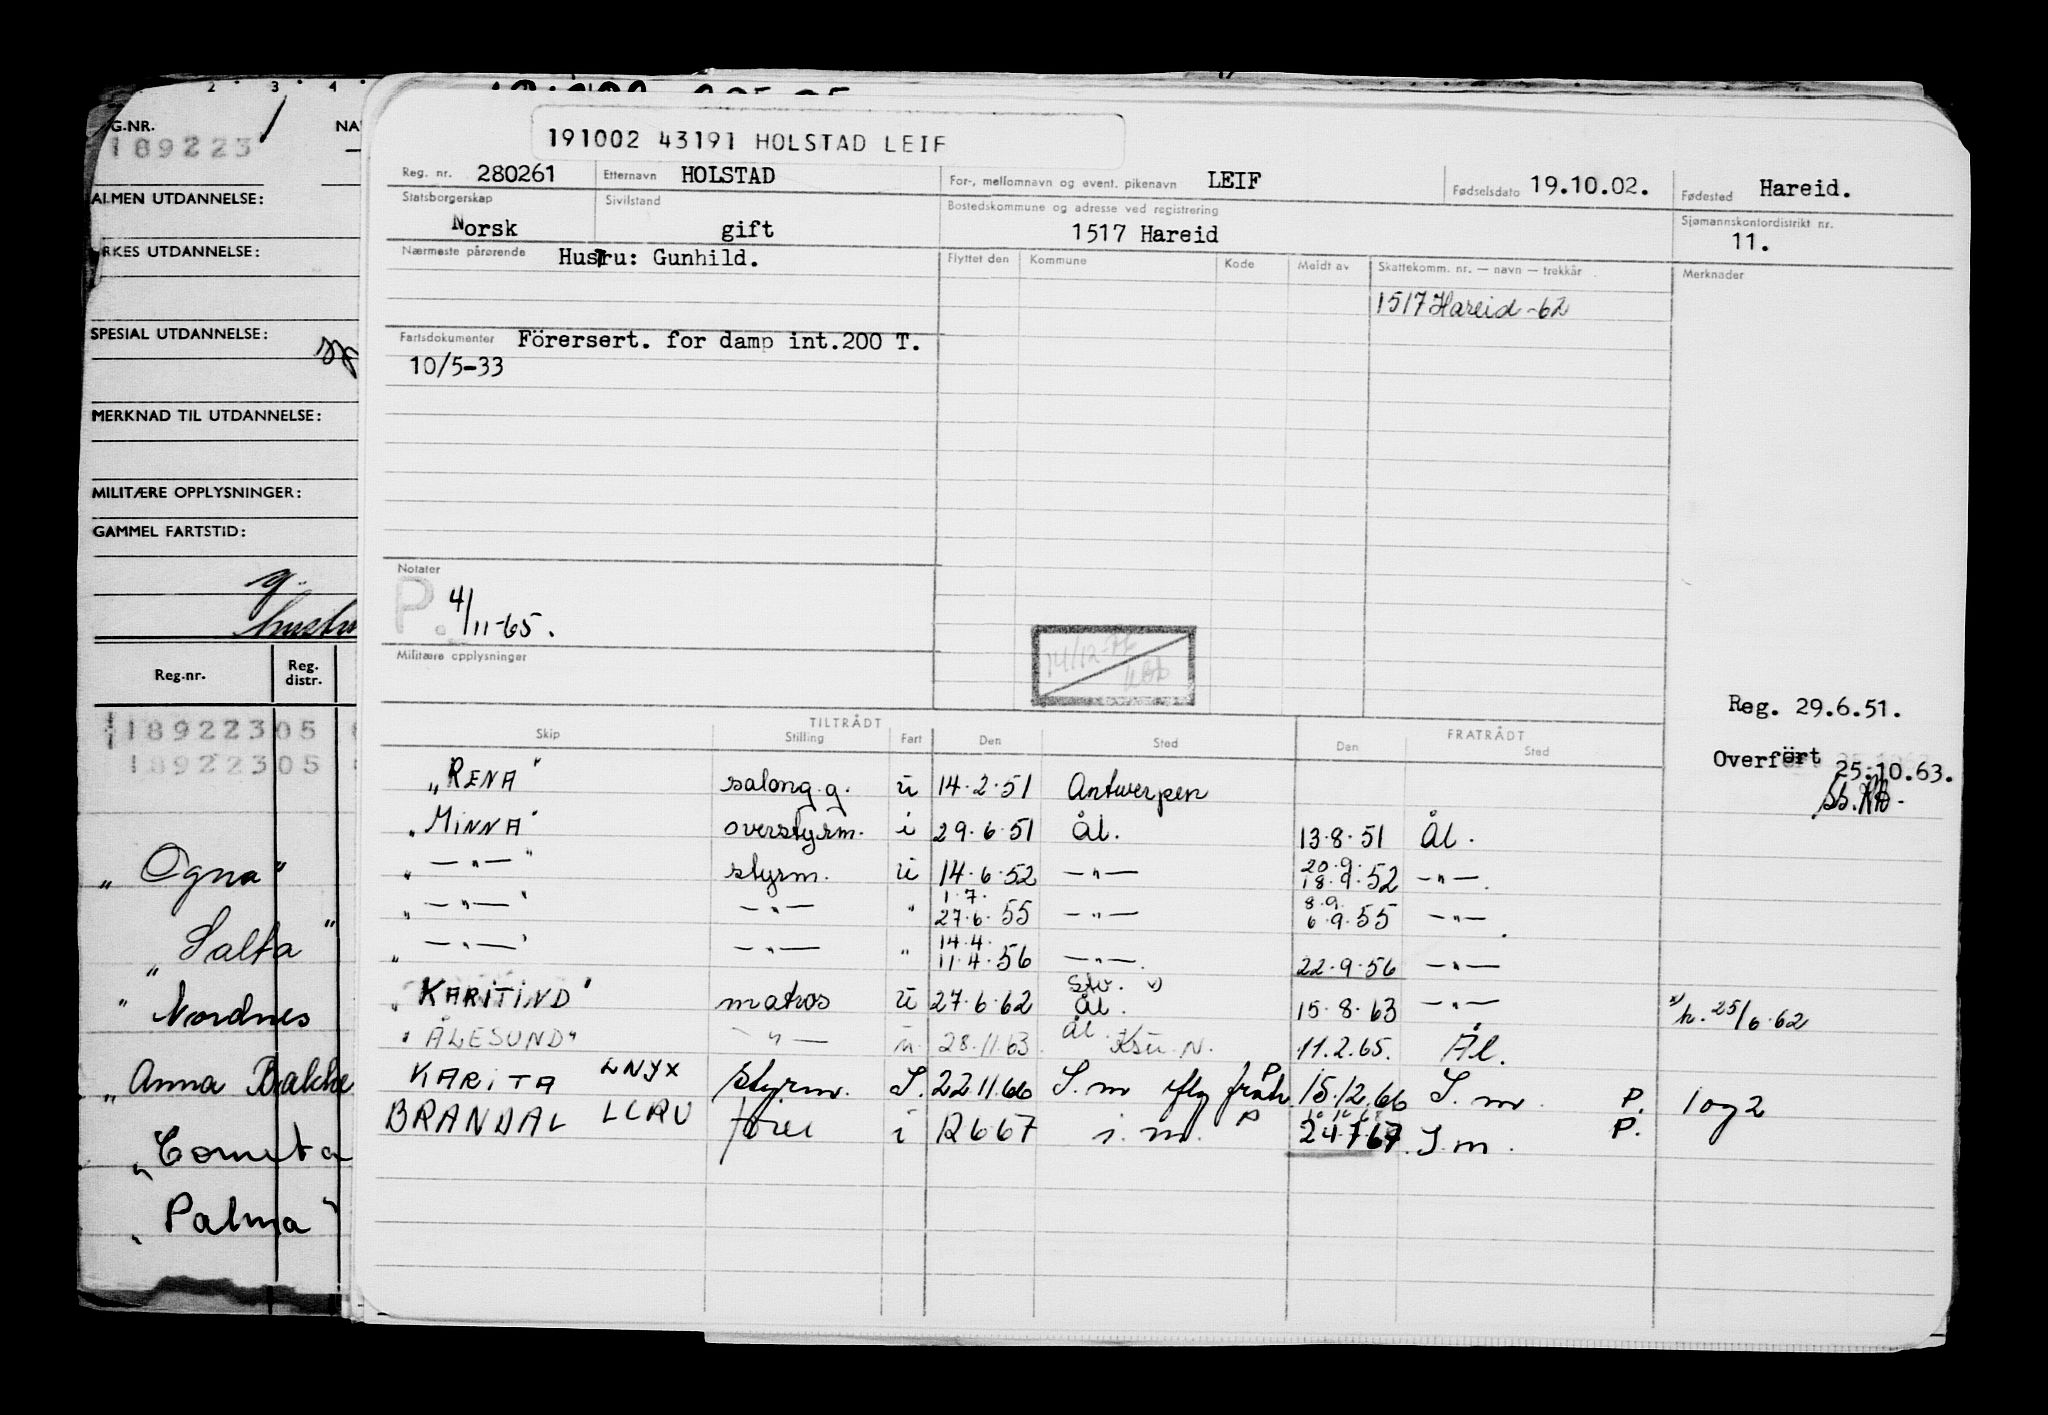 2 3 4
G.NR. NA
189223
ALMEN UTDANNELSE:
RKES UTDANNELSE:
SPESIAL UTDANNELSE:
MERKNAD TIL UTDANNELSE:
MILITÆRE OPPLYSNINGER:
GAMMEL FARTSTID:
g.
Reg.nr. Reg. distr.
18922305
18922305
„ Ogna "
„ Salta "
" Nordnes
„ Anna Bakke
„ Cometa
„ Palma "
191002 43191 HOLSTAD LEIF
Reg. nr. 280261 Etternavn HOLSTAD For-, mellomnavn og event. pikenavn LEIF Fødselsdato 19.10.02. Fødested Hareid.
Statsborgerskap Sivilstand Bostedskommune og adresse ved registrering Sjømannskontordistrikt nr.
Norsk gift 1517 Hareid 11.
Nærmeste pårørende Hustru: Gunhild. Flyttet den Kommune Kode Meldt av Skattekomm. nr. — navn — trekkår Merknader
1517 Hareid -62
Fartsdokumenter Förersert. for damp int.200 T.
10/5-33
Notater
P. 4/11-65.
Militære opplysninger
Reg. 29.6.51.
Overfört 25.10.63.
TILTRÅDT FRATRÅDT
Skip Stilling Fart Den Sted Den Sted
„RENA" salong.g. u 14.2.51 Antwerpen
„MINNA" overstyrm. i 29.6.51 Ål. 13.8.51 Ål.
„ —„— " styrm. u 14.6.52 —„— 20.9. 18.9.52 —„—.
„ —„— " —„— " 1.7. 27.6.55 —„— 8.9. 6.9.55 —„—.
„ —„— " —„— " 14.4. 11.4.56 —„—. 22.9.56 —„—
„ KARITIND " matros u 27.6.62 Ål. 15.8.63 —„— h. 25/6.62
" ÅLESUND " —„— u. 28.11.63. Ål. N. 11.2.65. Ål.
KARITA LNYX styrm. S. 22.11.66 S.m P 15.12.66 S.m. P. 1 og 2
BRANDAL LCRU fører i 12.6.67 i.m. P 24.7.67. S.m. P.